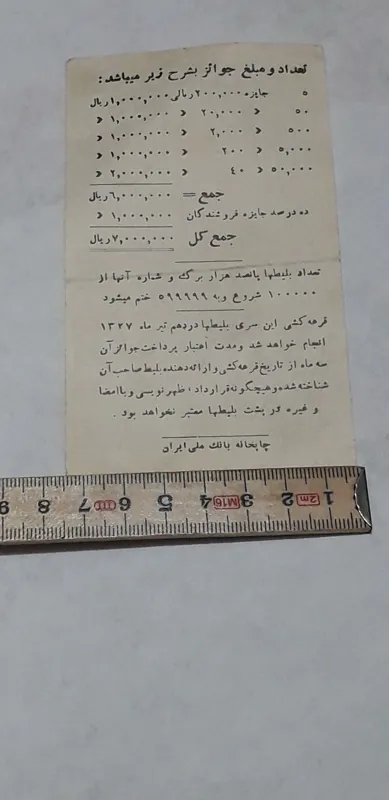 تعداد و مبلغ جوائز بشرح زیر میباشد :
۵ جایزه ۲۰۰,۰۰۰ ریالی ۱,۰۰۰,۰۰۰ ریال
۵۰ » ۲۰,۰۰۰ » ۱,۰۰۰,۰۰۰ »
۵۰۰ » ۲,۰۰۰ » ۱,۰۰۰,۰۰۰ »
۵,۰۰۰ » ۲۰۰ » ۱,۰۰۰,۰۰۰ »
۵۰,۰۰۰ » ۴۰ » ۲,۰۰۰,۰۰۰ »
جمع = ۶,۰۰۰,۰۰۰ ریال
ده درصد جایزه فروشندگان ۱,۰۰۰,۰۰۰ »
جمع کل ۷,۰۰۰,۰۰۰ ریال
تعداد بلیطها پانصد هزار برگ و شماره آنها از
۱۰۰۰۰۰ شروع و به ۵۹۹۹۹۹ ختم میشود
قرعه کشی این سری بلیطها در دهم تیر ماه ۱۳۲۷
انجام خواهد شد و مدت اعتبار پرداخت جوائز آن
سه ماه از تاریخ قرعه کشی و ارائه دهنده بلیط صاحب آن
شناخته شده و هیچگونه قرارداد، ظهر نویسی و یا امضا
و غیره در پشت بلیطها معتبر نخواهد بود .
چاپخانه بانک ملی ایران
1 2m 2 M16 4 5 6 7 8 9